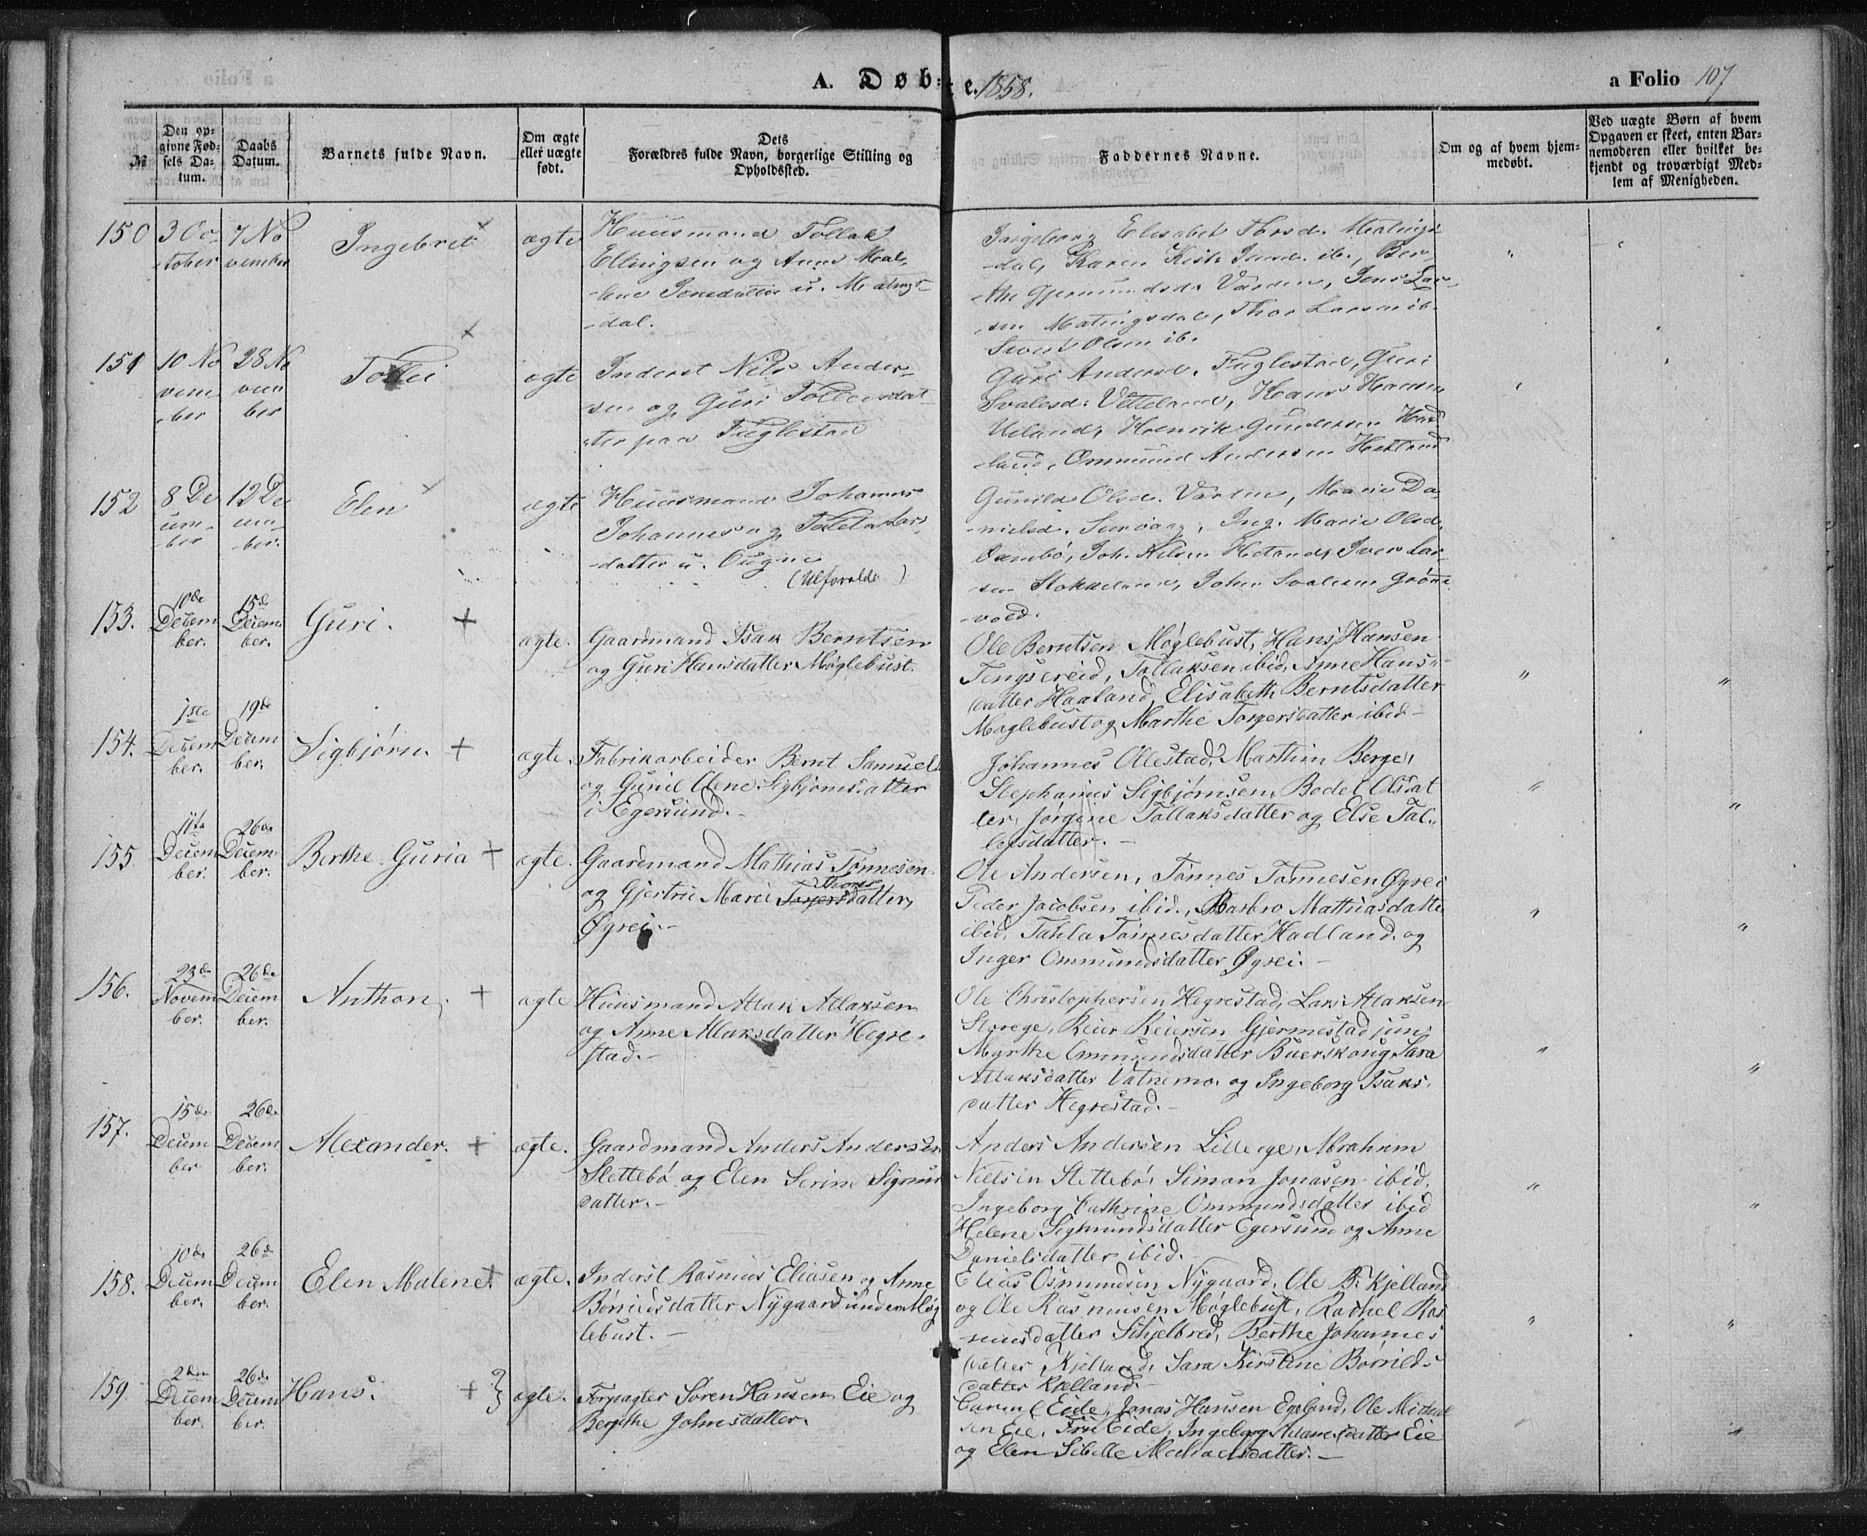 A. Døb- e. 1858.
a Folio 107
№
Den op-
givne Fød-
sels Da-
tum.
Daabs
Datum.
Barnets fulde Navn.
Om ægte
eller uægte
født.
Dets
Forældres fulde Navn, borgerlige Stilling og
Opholdssted.
Faddernes Navne.
Om og af hvem hjem-
medøbt.
Ved uægte Børn af hvem
Opgaven er skeet, enten Bar-
nemoderen eller hvilket be-
kjendt og troværdigt Med-
lem af Menigheden.
150
7 No
-tober
vember
Ingebret
ægte
Huusmand Tollak
Ellingsen og Anne Mal-
-lene Jensdatter u. Malings-
-dal.
Ingeborg Elisabet Thorsd. Malings-
-dal, Karen ib., Ber-
-the Gjermundsd. Varden, Jens Lar-
-sen Malingsdal, Thor Larsen ib.
Sivert Olsen ib.
151
10 No
vem
-ber
28 No
vem
ber
Tollei
ægte
Inderst Nils Ander-
sen og Guri Tolleisdat-
-ter paa Fuglestad
Guri Andersd. Fuglestad, Guri
Svalesd. Vetteland, Hans Hansen
Ueland, Henrik Gundersen Had-
-land, Ommund Andersen Hetland
152
8 De
cem-
-ber
12 De
cem-
-ber.
Elen
ægte
Huusmand Johannes
Johannes og Tolleta Lars-
-datter u. Ougne
Gunild Olsd. Varden, Marie Da-
nielsd. Ing. Marie Olsd.
Joh. Nilsen Hetland, Iver Lar-
sen Stokkeland, John Svalesen Grøns-
-vold.
153.
10de
Decem
ber.
15de
Decem
ber.
Guri. +
ægte.
Gaardmand Isak Berntsen
og Guri Hansdatter Møglebust.
Ole Berntsen Møglebust, Hans Hansen
Tengsereid, Tollaksen ibid, Anne Hans-
datter Haaland, Elisabeth Berntsdatter
Møglebust og Marthe Torgersdatter ibid –
154.
1ste
Decem
ber.
19de
Decem
ber.
Sigbjørn. +
ægte.
Fabrikarbeider Bernt Samuels
og Gunil Olene Sigbjørnsdatter
i Egersund. –
Johannes Ollestad, Marthin Berge,
Stephanius Sigbjørnsen, Bodel Olsdat
ter, Jørgine Tollaksdatter og Else Tol-
lefsdatter. –
155
11te
Decem
ber.
26de
Decem
ber.
Berthe Guria +
ægte.
Gaardmand Mathias Tønnesen
Thors
og Gjertru Marie Torgersdatter,
Øyrei. –
Ole Andersen, Tønnes Tønnesen Øyrei
Peder Jacobsen ibid., Barbro Mathiasdatter
ibid, Tahla Tønnesdatter Hadland og
Inger Ommundsdatter Øyrei. –
156.
23de
Novem
ber.
26de
Decem
ber.
Anthon. +
ægte
Huusmand Atlak Atlaksen
og Anne Atlaksdatter Hegre-
stad. –
Ole Christophersen Hegrestad, Lars Atlaksen
Reier Reiersen Gjermestad jun.
Marthe Ommundsdatter Buerskoug, Sara
Atlaksdatter Vatnemo og Ingeborg Isaks-
datter Hegrestad. –
157.
15de
Decem
ber
26de
Decem
ber.
Alexander. +
ægte.
Gaardmand Anders Andersen
Slettebø og Elen Serine Sigmunds
datter. –
Anders Andersen Lillege, Abraham
Nielsen Slettebø, Simon Jonasen ibid,
Ingeborg Cathrine Ommundsdatter ibid
Helene Sigmundsdatter Egersund og Anne
Danielsdatter ibid. –
158.
10de
Decem
ber.
26de
Decem
ber.
Elen Malene. +
ægte.
Inderst Rasmus Eliasen og Anne
Børrildsdatter Nygaard under Møg
lebust. –
Elias Osmundsen Nygaard, Ole B. Kjelland
og Ole Rasmusen Møglebust, Rachel Ras
musdatter Skjelbred, Berthe Johannes
datter Kjelland, Sara Kirstine Børrilds
datter Kjelland. –
159.
2den
Decem
ber.
26de
Decem
ber.
Hans. +
ægte.
Forpagter Søren Hansen Eie og
Berthe Johnsdatter.
Caren Eide, Jonas Hansen Egelund, Ole Michal
sen Eie, Fru Eide, Ingeborg Adamsdatter Eie
og Elen Sibille Michaelsdatter. –